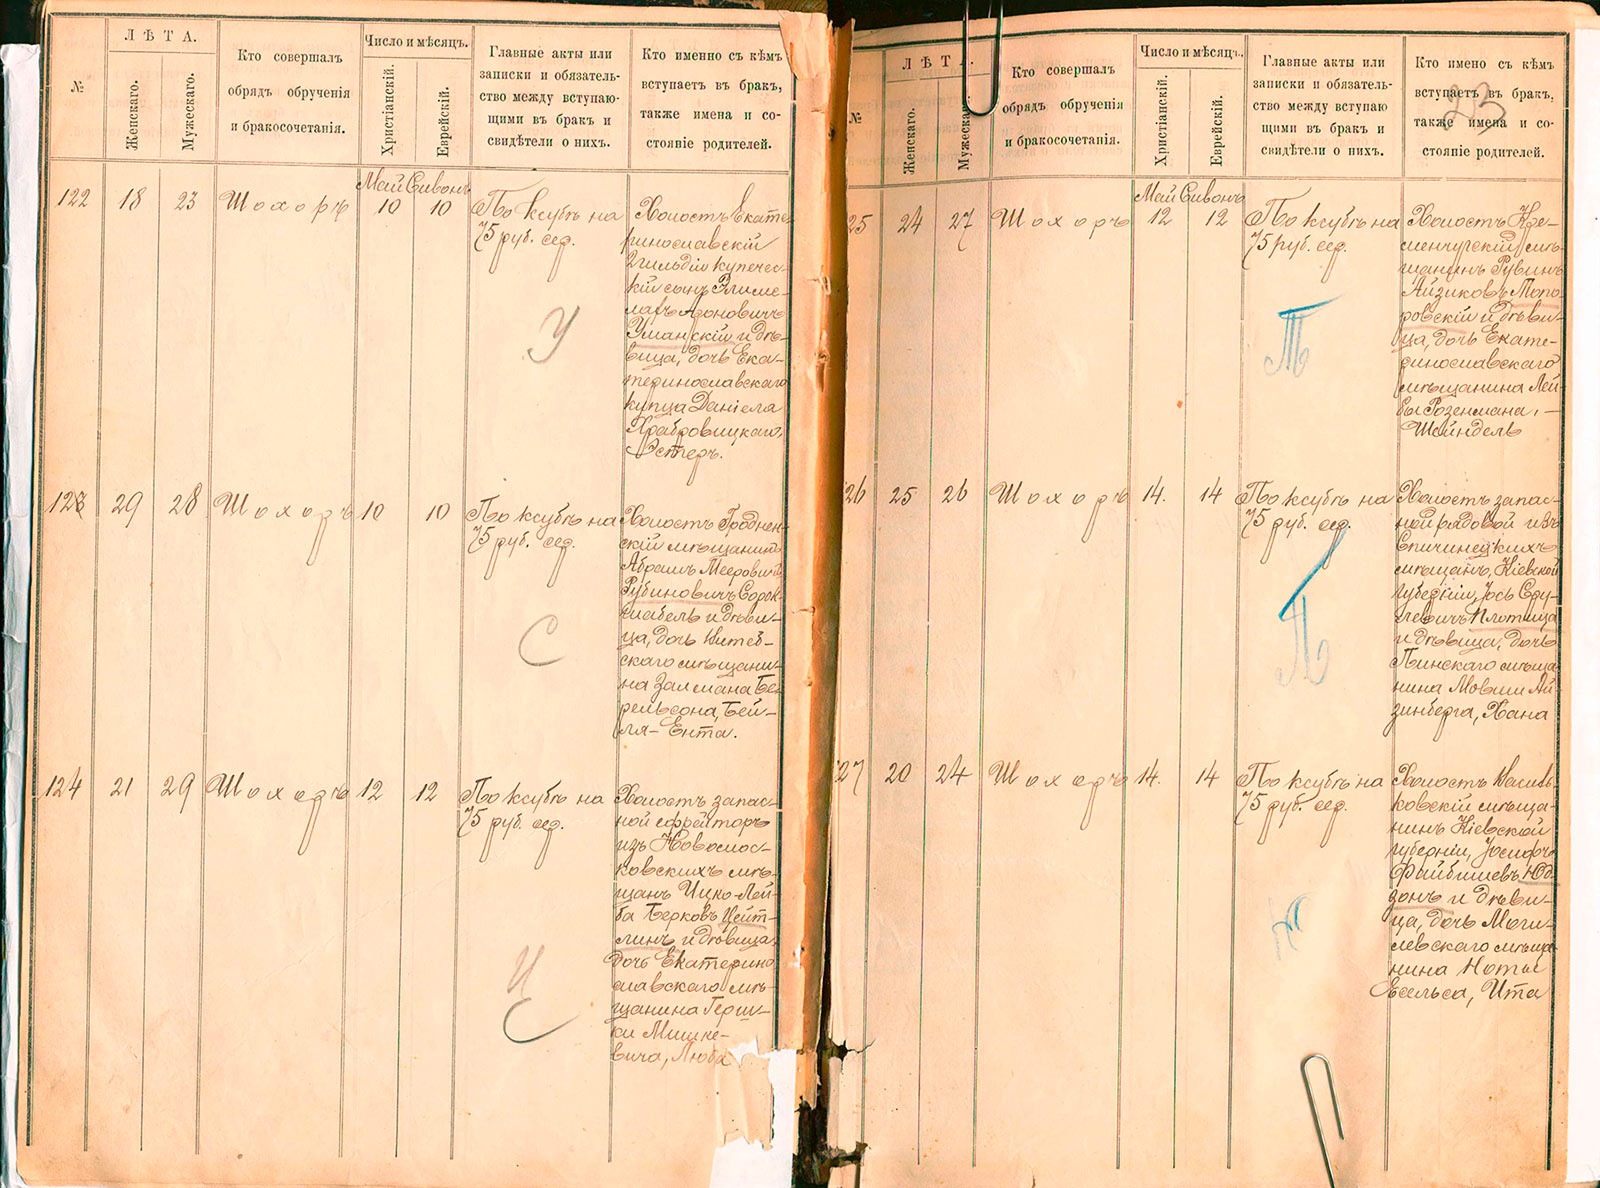 №
ЛѢТА.
Женскаго.
Мужескаго.
Кто совершалъ
обрядъ обрученія
и бракосочетанія.
Число и мѣсяцъ.
Христіанскій.
Еврейскій.
Главные акты или
записки и обязатель-
ство между вступаю-
щими въ бракъ и
свидѣтели о нихъ.
Кто именно съ кѣмъ
вступаетъ въ бракъ,
также имена и со-
стояніе родителей.
Май Сивонъ
122 18 23 Шохоръ 10 10
По ксубѣ на
75 руб. сер.
У
Холостъ Екате-
ринославскій
2 гильдіи купечес-
кій сынъ
Ароновичъ
Уманскій и дѣ-
вица, дочь Ека-
теринославскаго
купца Даніела
Храбровицкаго,
Эстеръ.
123 29 28 Шохоръ 10 10
По ксубѣ на
75 руб. сер.
С
Холостъ Гроднен-
скій мѣщанинъ
Абрамъ Мееровичъ
Рубиновичъ Сорок-
скабель и дѣви-
ца, дочь Витеб-
скаго мѣщани-
на Залмана Бе-
рельсона, Бей-
ля-Ента.
124 21 29 Шохоръ 12 12
По ксубѣ на
75 руб. сер.
Ц
С
Холостъ запас-
ной ефрейторъ
изъ Новомос-
ковскихъ мѣ-
щанъ Ицко-Лей-
ба Берковъ Цейт-
линъ и дѣвица,
дочь Екатерино-
славскаго мѣ-
щанина Герш-
ки Мишке-
вича, Люба
23
№
ЛѢТА.
Женскаго.
Мужескаго.
Кто совершалъ
обрядъ обрученія
и бракосочетанія.
Число и мѣсяцъ.
Христіанскій.
Еврейскій.
Главные акты или
записки и обязатель-
ство между вступаю
щими въ бракъ и
свидѣтели о нихъ.
Кто имено съ кѣмъ
вступаетъ въ бракъ,
также имена и со-
стояніе родителей.
Май Сивонъ
25 24 27 Шохоръ 12 12
По ксубѣ на
75 руб. сер.
Т
Холостъ Кре-
менчугскій мѣ-
щанинъ Рувинъ
Айзиковъ Топо-
ровскій и дѣви-
ца, дочь Екате-
ринославскаго
мѣщанина Лей-
бы Розенмана,
Шейндель
26 25 26 Шохоръ 14. 14
По ксубѣ на
75 руб. сер.
П
Холостъ запас-
ной рядовой изъ
Спичинецкихъ
мѣщанъ, Кіевской
губерніи, Іось Сру-
левичъ Плотица
и дѣвица, дочь
Пинскаго мѣща-
нина Мовши Ай-
зинберга, Хана
27 20 24 Шохоръ 14. 14
По ксубѣ на
75 руб. сер.
Ю
Холостъ Василь-
ковскій мѣща-
нинъ Кіевской
губерніи, Іосифъ
Файбишевъ Юд-
зонъ и дѣви-
ца, дочь Моги-
левскаго мѣща-
нина Ноты
Евсельса, Ита